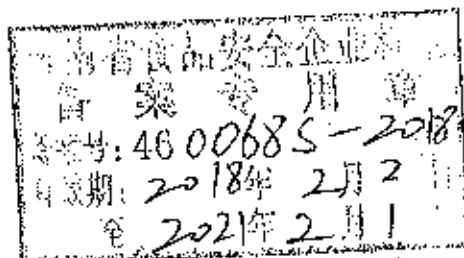 南省食品安全企业标
备案专用章
备案号: 4600068S-2018
有效期: 2018年2月2日
至 2021年2月1